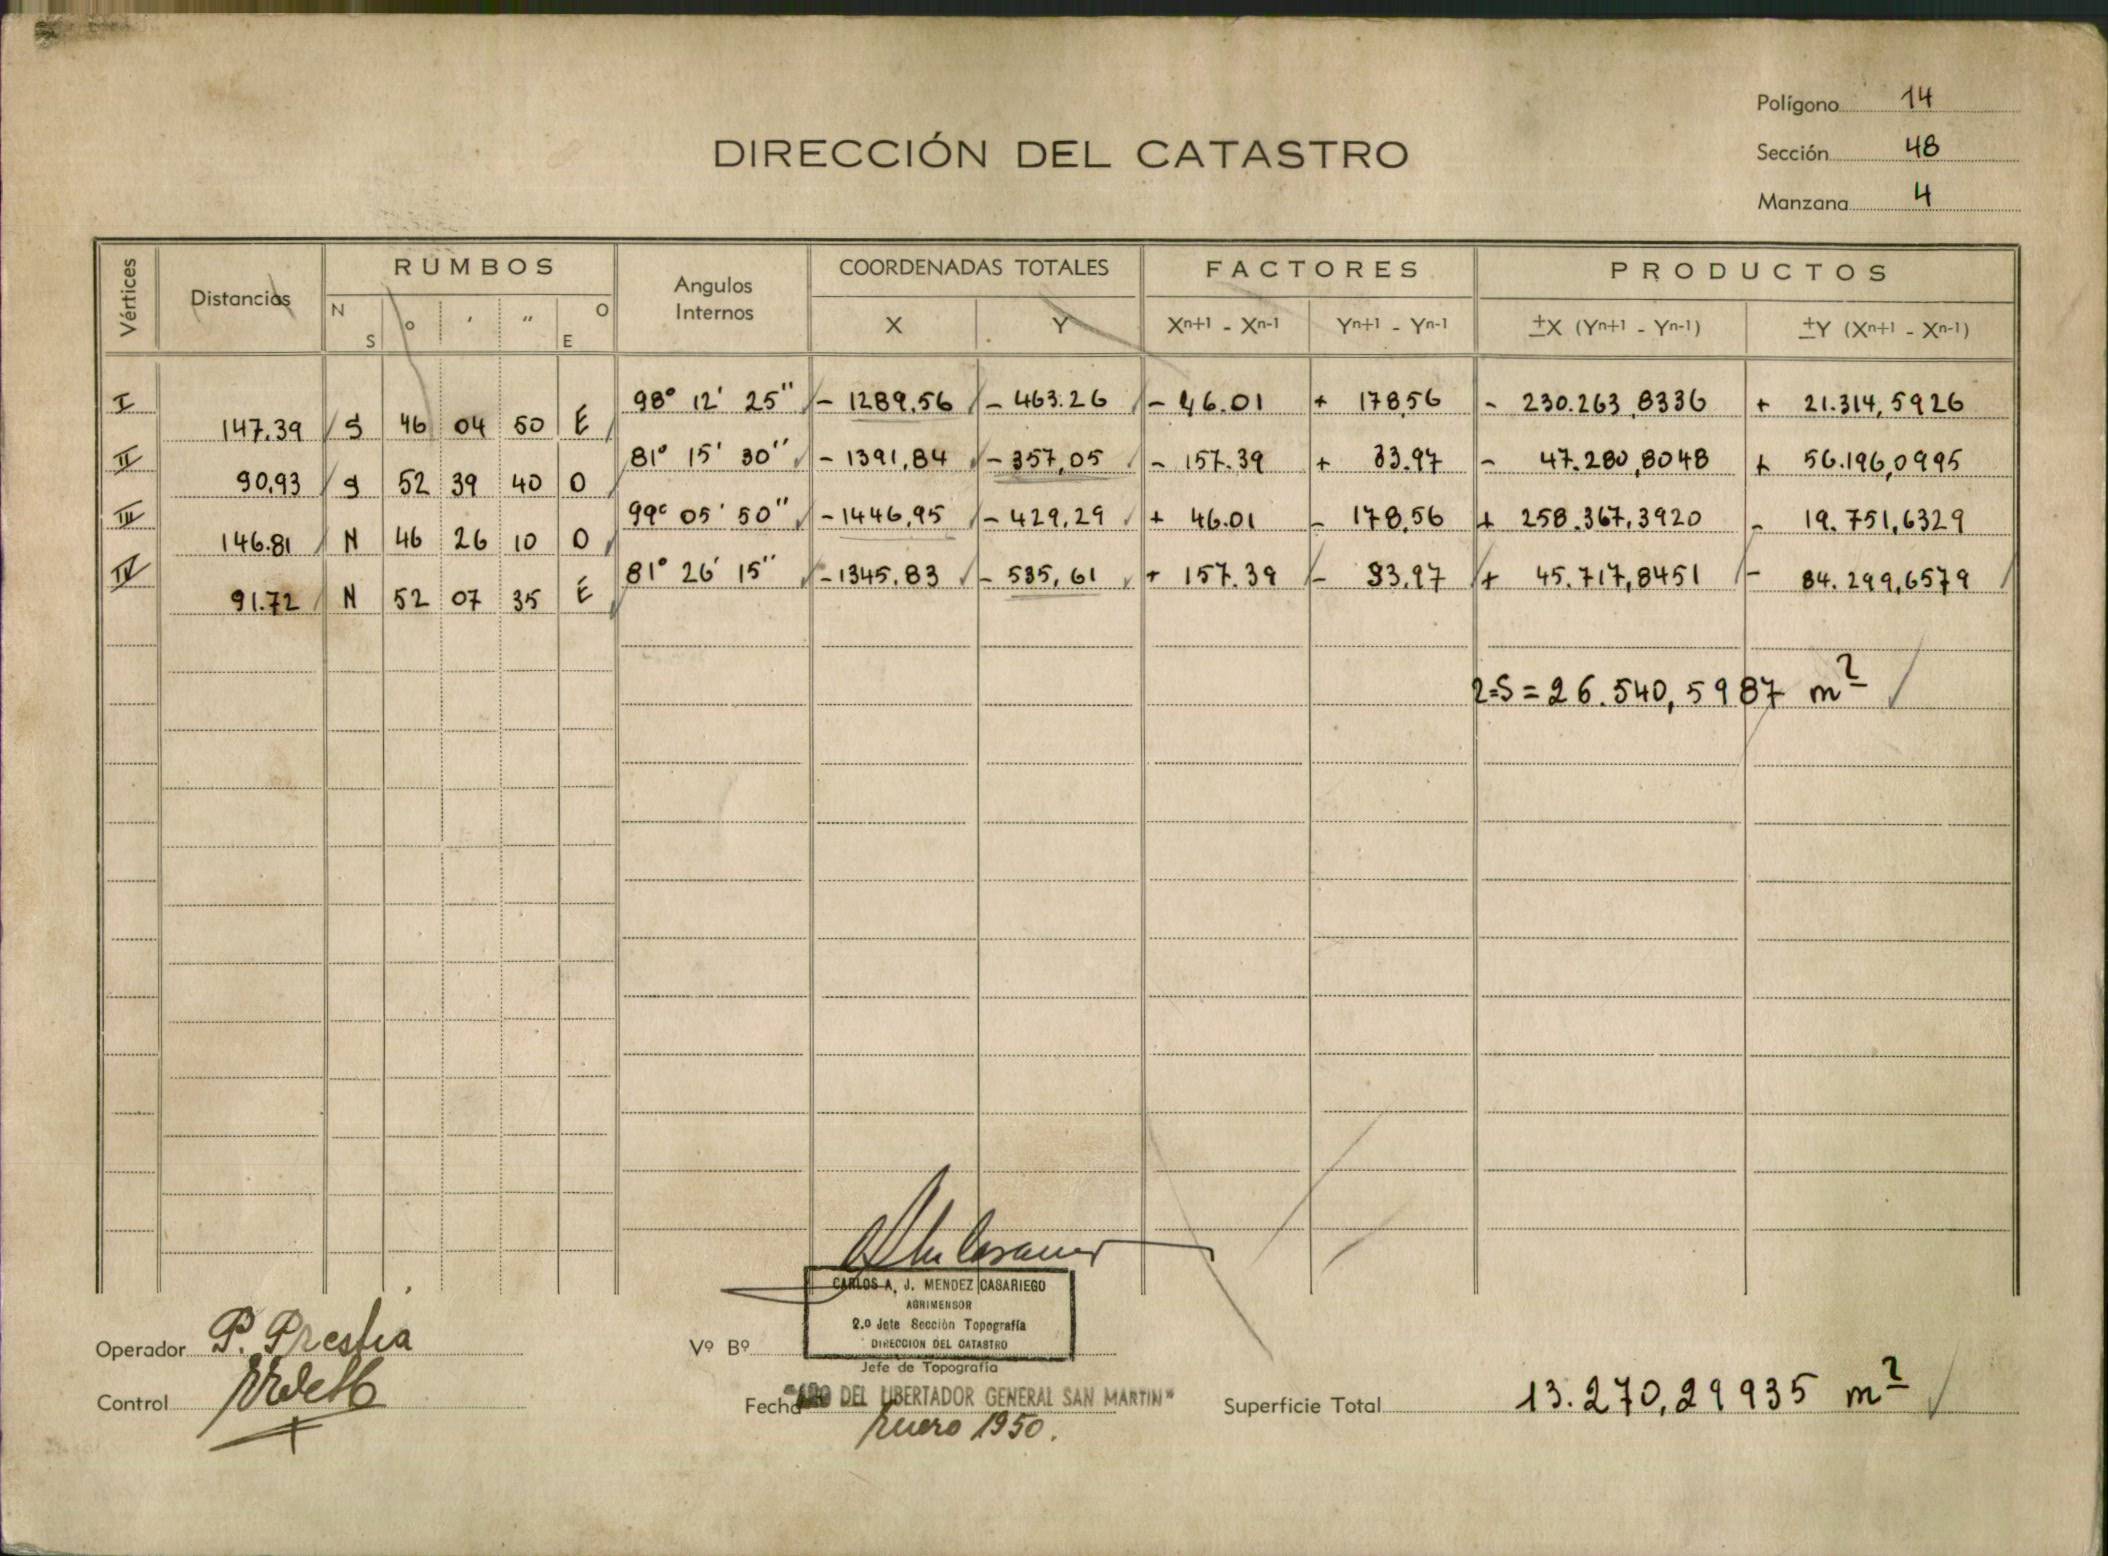 Polígono 14
DIRECCIÓN DEL CATASTRO
Sección 48
Manzana 4
Vértices Distancias RUMBOS Angulos Internos COORDENADAS TOTALES FACTORES PRODUCTOS
N S ° ' " O E X Y Xn+1 - Xn-1 Yn+1 - Yn-1 ±X (Yn+1 - Yn-1) ±Y (Xn+1 - Xn-1)
I 98° 12' 25" - 1289,56 - 463.26 - 46.01 + 178,56 - 230.263,8336 + 21.314,5926
147.39 S 46 04 50 E
II 81° 15' 30" - 1391,84 - 357,05 - 157.39 + 33.97 - 47.280,8048 + 56.196,0995
90,93 S 52 39 40 O
III 99° 05' 50" - 1446,95 - 429,29 + 46.01 - 178,56 + 258.367,3920 - 19.751,6329
146.81 N 46 26 10 O
IV 81° 26' 15" - 1345,83 - 535,61 + 157.39 - 33,97 + 45.717,8451 - 84.299,6579
91.72 N 52 07 35 E
2S = 26.540,5987 m²
CARLOS A. J. MENDEZ CASARIEGO
AGRIMENSOR
2.o Jefe Sección Topografía
DIRECCION DEL CATASTRO
Operador P. Prestia
Vº Bº
Jefe de Topografía
Control
Fecha "AÑO DEL LIBERTADOR GENERAL SAN MARTIN"
Enero 1950.
Superficie Total 13.270,29935 m²